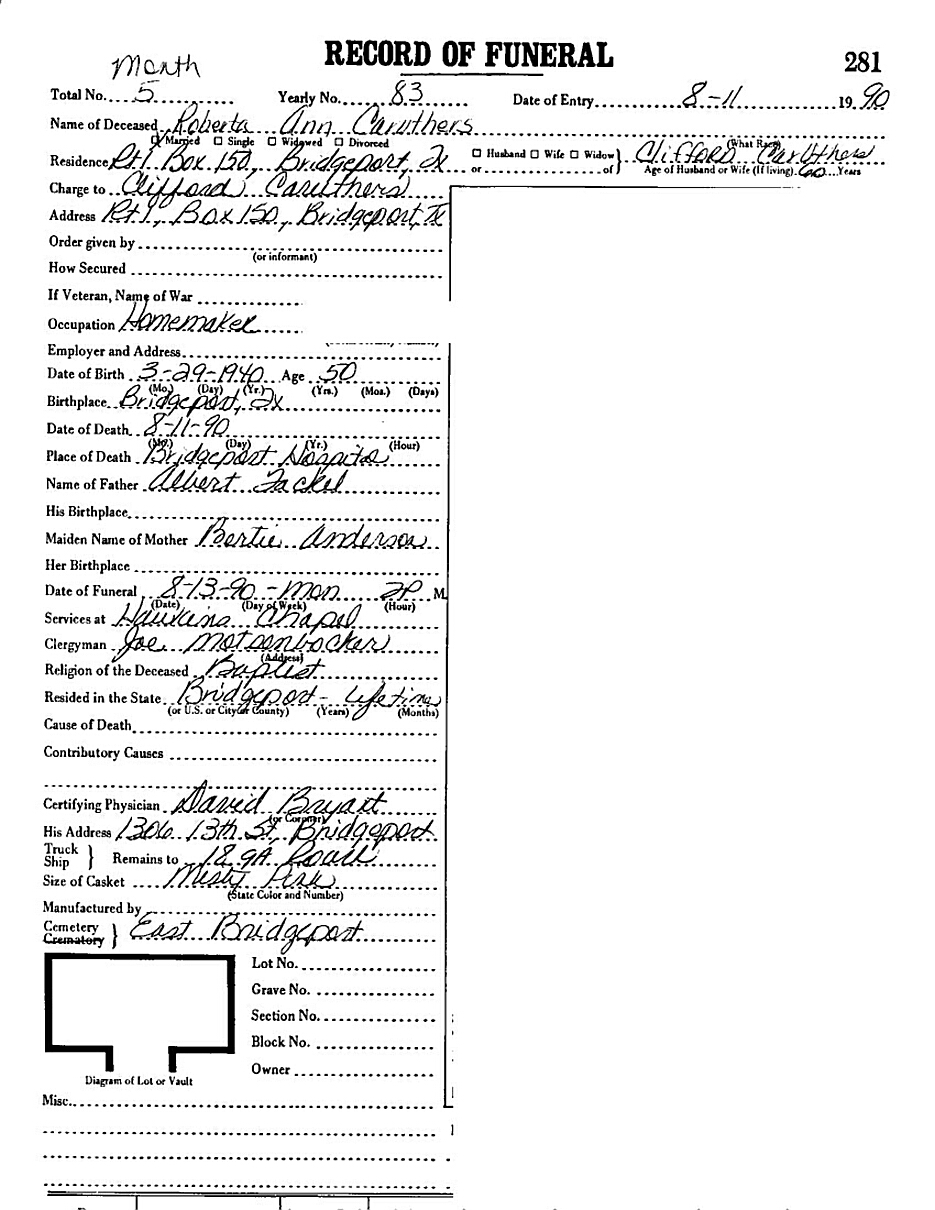 RECORD OF FUNERAL 281
Month
Total No. 5 Yearly No. 83 Date of Entry 8-11 1990
Name of Deceased Roberta Ann Caruthers
(What Race)
Married ☐ Single ☐ Widowed ☐ Divorced
Residence Rt 1 Box 150, Bridgeport, Tx ☐ Husband ☐ Wife ☐ Widow } Clifford Caruthers
or of Age of Husband or Wife (If living) 60 Years
Charge to Clifford Caruthers
Address Rt 1, Box 150, Bridgeport, Tx
Order given by
(or informant)
How Secured
If Veteran, Name of War
Occupation Homemaker
Employer and Address
Date of Birth 3-29-1940 Age 50
(Mo.) (Day) (Yr.) (Yrs.) (Mos.) (Days)
Birthplace Bridgeport, Tx
Date of Death 8-11-90
(Mo.) (Day) (Yr.) (Hour)
Place of Death Bridgeport Hospital
Name of Father Albert
His Birthplace
Maiden Name of Mother Bertie Anderson
Her Birthplace
Date of Funeral 8-13-90 - Mon 2P M.
(Date) (Day of Week) (Hour)
Services at Hawkins Chapel
Clergyman Joe Motsenbocker
(Address)
Religion of the Deceased Baptist
Resided in the State Bridgeport - Lifetime
(or U.S. or City or County) (Years) (Months)
Cause of Death
Contributory Causes
Certifying Physician David Bryant
(or Coroner)
His Address 1306 13th St, Bridgeport
Truck
Ship } Remains to 18 gA
Size of Casket Misty Pink
(State Color and Number)
Manufactured by
Cemetery
Crematory } East Bridgeport
Lot No.
Grave No.
Section No.
Block No.
Owner
Diagram of Lot or Vault
Misc.